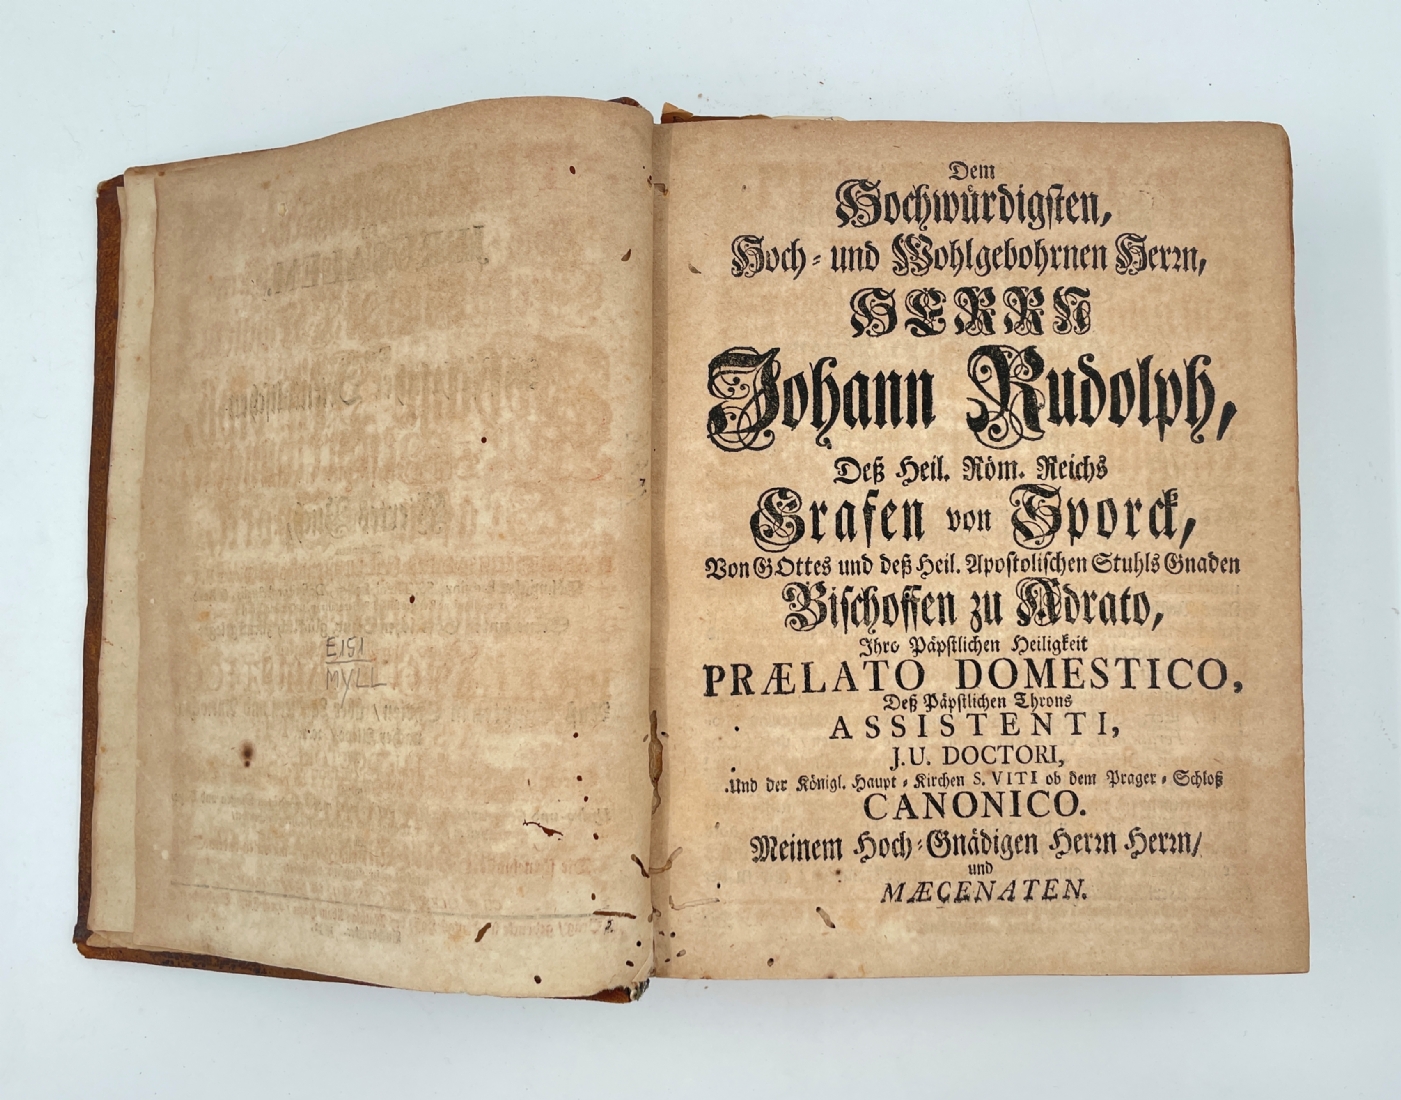 E151
MYLL
Dem
Hochwürdigsten,
Hoch- und Wohlgebohrnen Herrn,
HERRN
Johann Rudolph,
Deß Heil. Röm. Reichs
Grafen von Sporck,
Von GOttes und deß Heil. Apostolischen Stuhls Gnaden
Bischoffen zu Adrato,
Ihro Päpstlichen Heiligkeit
PRÆLATO DOMESTICO,
Deß Päpstlichen Throns
ASSISTENTI,
J.U. DOCTORI,
Und der Königl. Haupt-Kirchen S. VITI ob dem Prager-Schloß
CANONICO.
Meinem Hoch-Gnädigen Herrn Herrn/
und
MÆCENATEN.